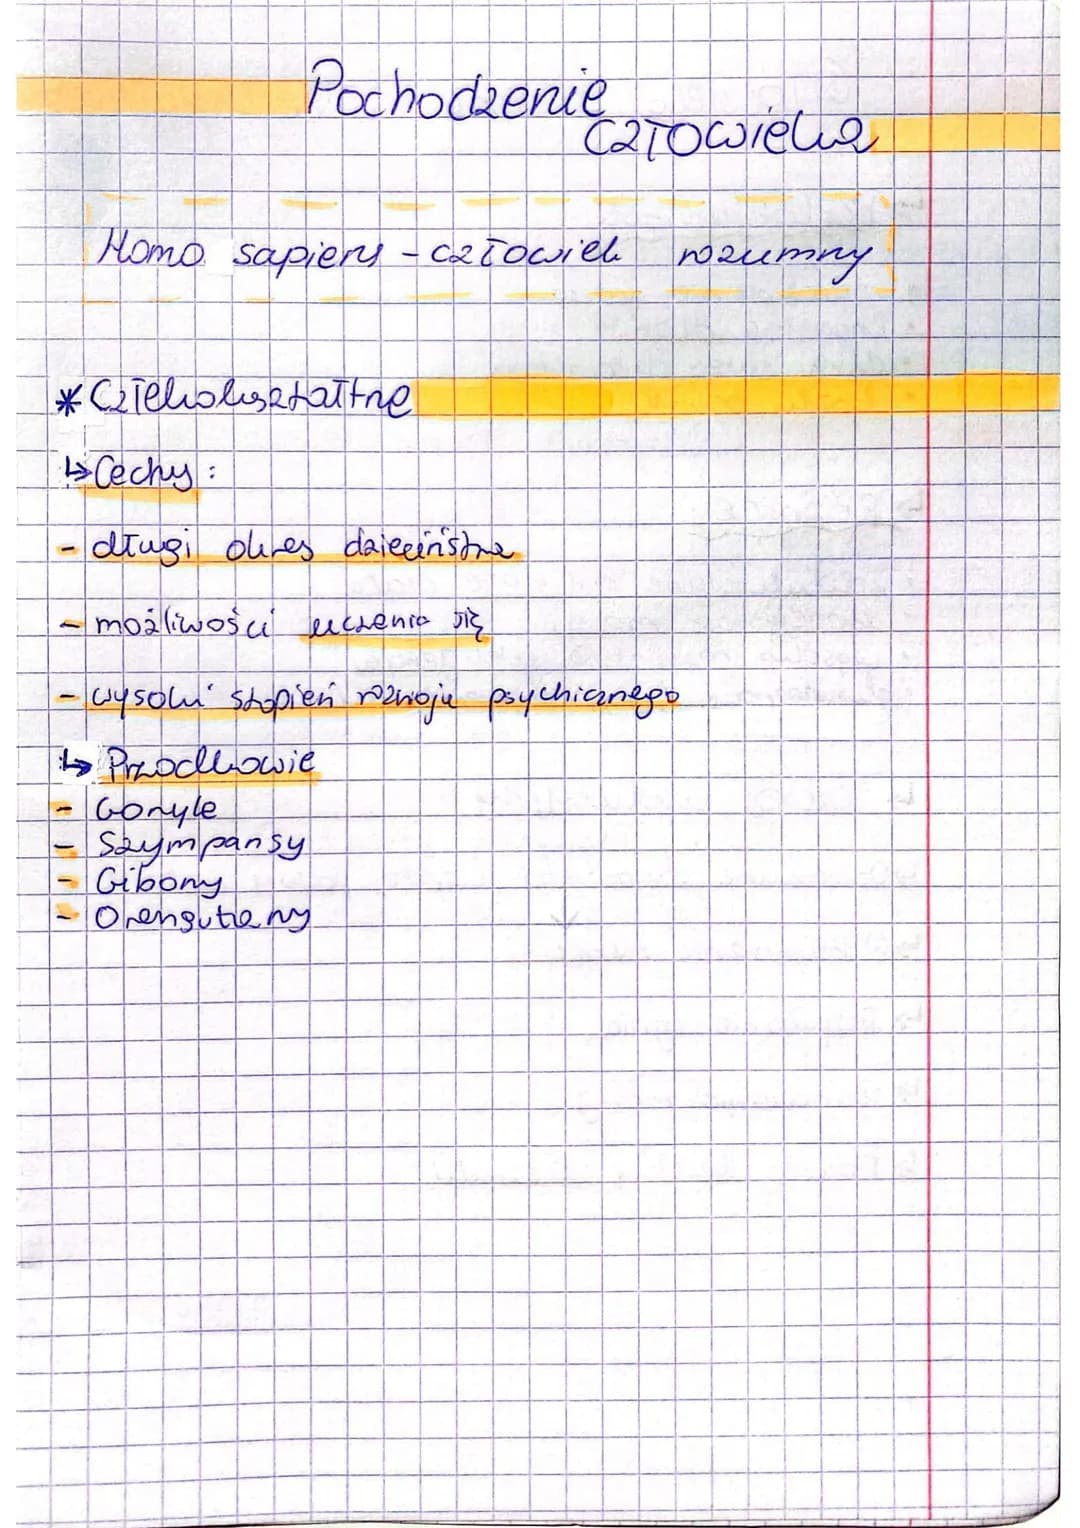 Pochodzenie
człowieka
Homo sapiens - człowiek rozumny
* Człekokształtne
↳ Cechy:
- długi okres dzieciństwa
- możliwości uczenia się
- wysoki stopień rozwoju psychicznego
↳ Przodkowie
- Goryle
- Szympansy
- Gibony
- Orengutany